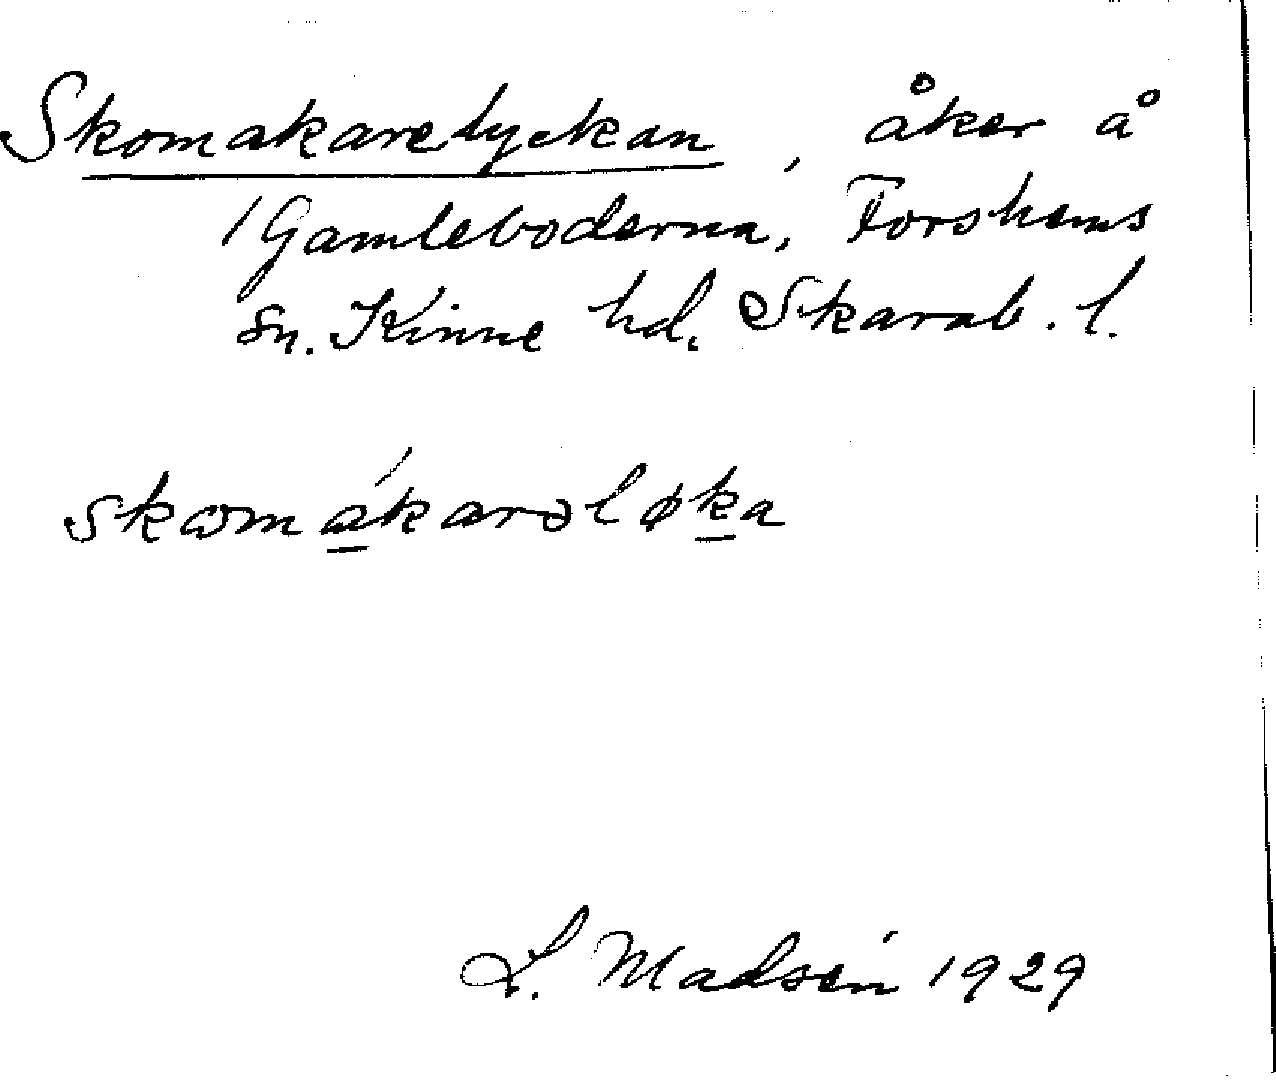 Skomakarelyckan, åker å
/Gamleboderna, Forshems
sn. Kinne hd. Skarab. l.
skωmákarəløka
L. Madsén 1929